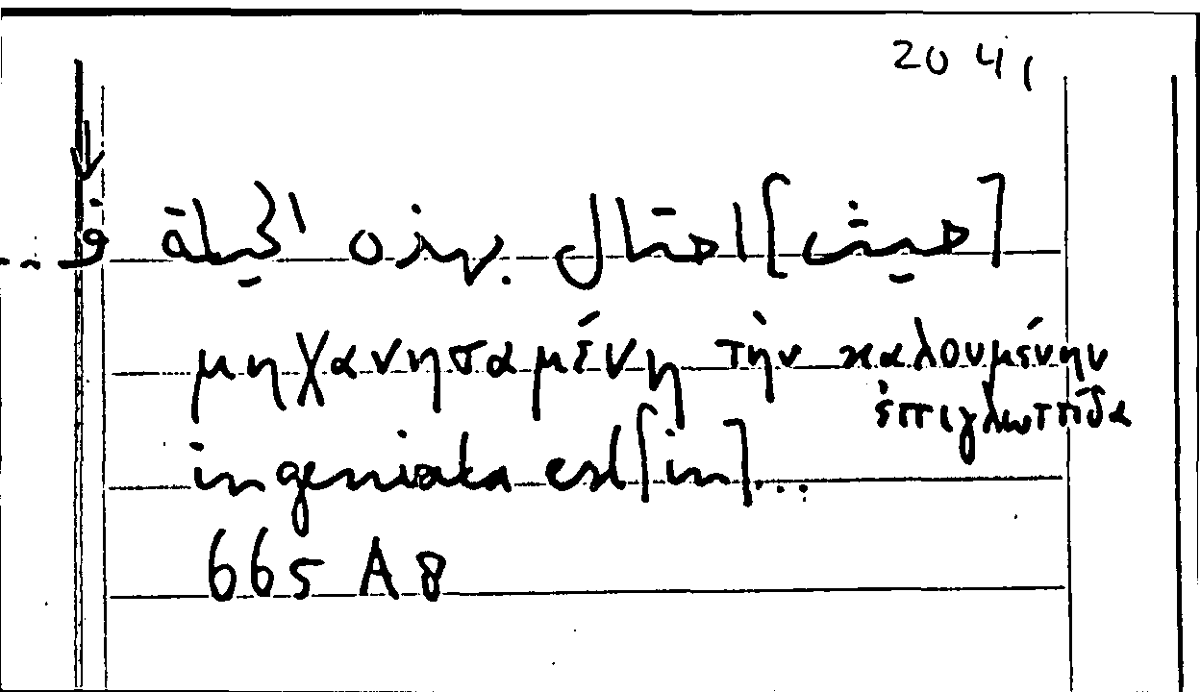 2041
[حيث] احتال بهذه الحيلة فى ...
μηχανησαμένη τὴν καλουμένην
ἐπιγλωττίδα
ingeniata est [in] ...
665 A 8